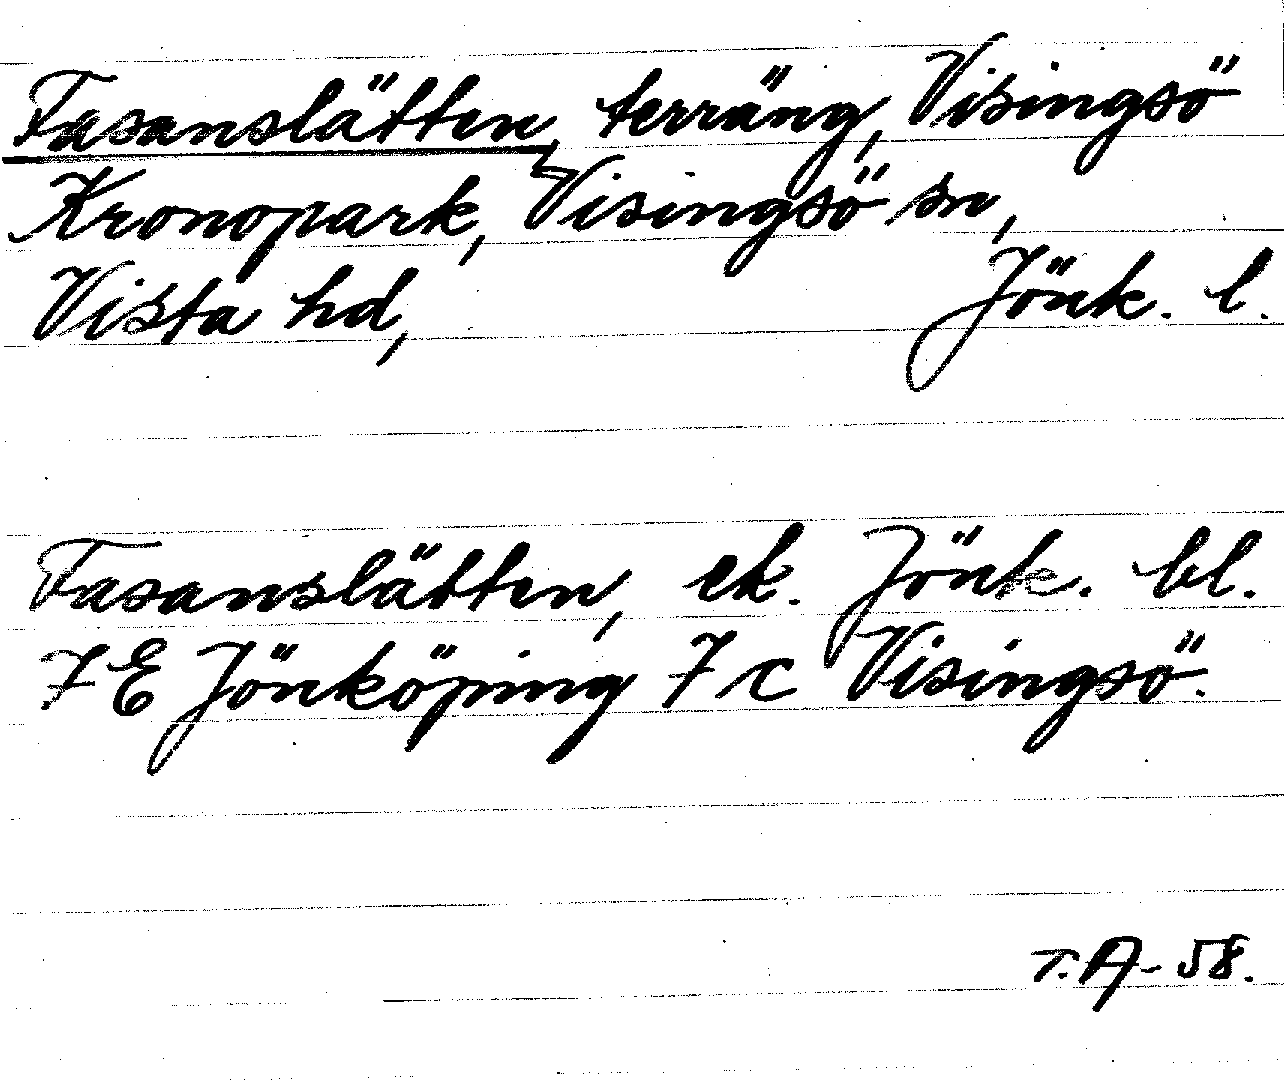 Fasanslätten, terräng, Visingsö
Kronopark, Visingsö sn,
Vista hd, Jönk. l.
Fasanslätten, ek. Jönk. bl.
7E Jönköping 7 c Visingsö.
T.A-58.